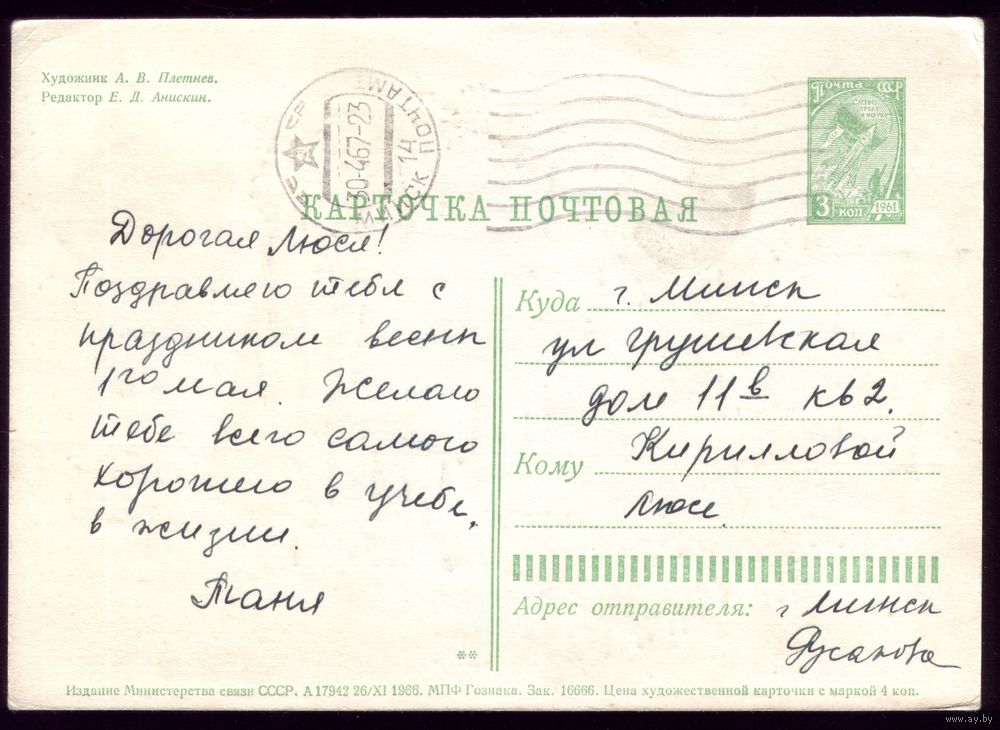 Художник А. В. Плетнев.
Редактор Е. Д. Анискин.
МИНСК 14 ПОЧТАМТ
30-467-23
СССР
Почта СССР
3 коп
1961
КАРТОЧКА ПОЧТОВАЯ
Дорогая Люся!
Поздравляю тебя с
праздником весны
1го мая. Желаю
тебе всего самого
хорошего в учебе,
в жизни.
Таня
Куда г. Минск
ул Грушевская
дом 11 в кв 2.
Кому Кирилловой
Люсе
Адрес отправителя: г Минск
Русакова
**
Издание Министерства связи СССР. А 17942 26/XI 1966. МПФ Гознака. Зак. 16666. Цена художественной карточки с маркой 4 коп.
www.ay.by